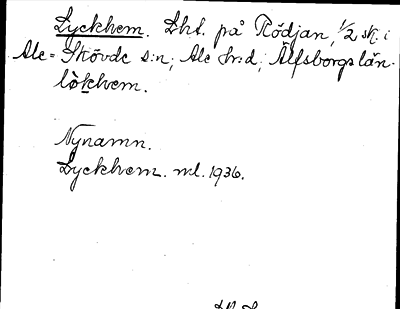 Lyckhem. Lht. på Rödjan, 1/2 sk. i
Ale-Skövde s:n; Ale hrd; Älfsborgs län.
lòkhem.
Nynamn.
Lyckhem. ml. 1936.